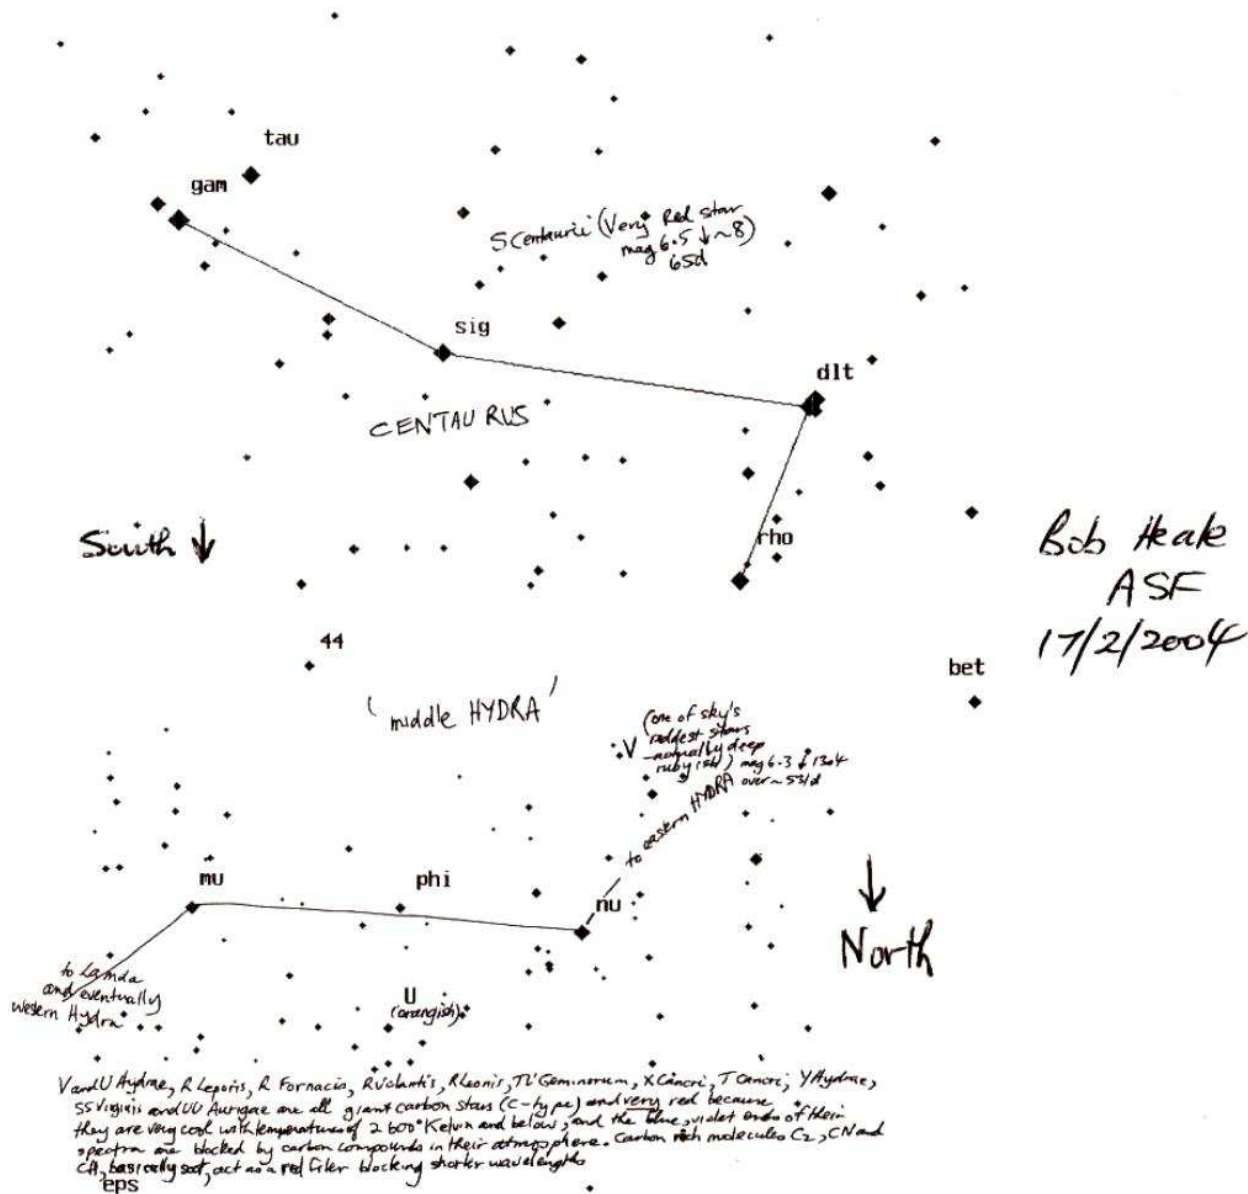 tau
gam
S Centaurii (Very Red star
mag 6.5 ↓ ~8)
65d
sig
dlt
CENTAURUS
South ↓
rho
Bob Heale
ASF
17/2/2004
44
bet
'middle HYDRA'
V (one of sky's
reddest stars
actually deep
ruby ish) mag 6.3 ↓ 13.4
over ~ 531d
to eastern HYDRA
mu
phi
nu
↓
North
to Lamda
and eventually
western Hydra
U
(orangish)
V and U Hydrae, R Leporis, R Fornacis, R Volantis, R Leonis, TU Geminorum, X Cancri, T Cancri, Y Hydrae,
SS Virginis and UU Aurigae are all giant carbon stars (C-type) and very red because
they are very cool with temperatures of 2600° Kelvin and below, and the blue, violet ends of their
spectra are blocked by carbon compounds in their atmosphere. Carbon rich molecules C2, CN and
CH, basically soot, act as a red filer blocking shorter wavelengths
eps